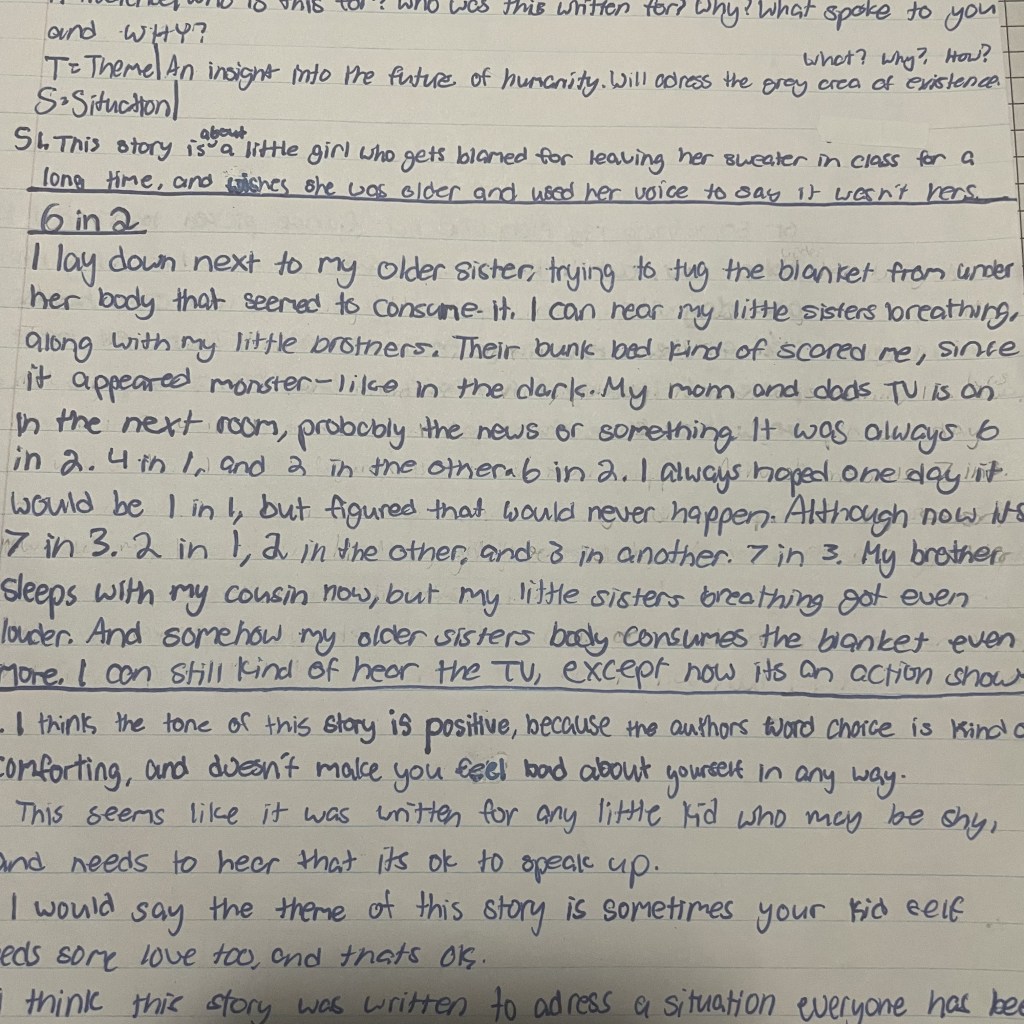 who is this for? who was this written for? Why? What spoke to you
and WHY?
What? Why? How?
T=Theme| An insight into the future of humanity. Will adress the grey area of existence
S=Situation|
S1. This story is about a little girl who gets blamed for leaving her sweater in class for a
long time, and wishes she was older and used her voice to say it wasn't hers.
6 in 2
I lay down next to my older sister, trying to tug the blanket from under
her body that seemed to consume it. I can hear my little sisters breathing,
along with my little brothers. Their bunk bed kind of scared me, since
it appeared monster-like in the dark. My mom and dads TV is on
in the next room, probably the news or something It was always 6
in 2. 4 in 1, and 2 in the other. 6 in 2. I always hoped one day it
would be 1 in 1, but figured that would never happen. Although now its
7 in 3. 2 in 1, 2 in the other, and 3 in another. 7 in 3. My brother
sleeps with my cousin now, but my little sisters breathing got even
louder. And somehow my older sisters body consumes the blanket even
more. I can still kind of hear the TV, except now its an action show
. I think the tone of this story is positive, because the authors word choice is kind o
comforting, and doesn't make you feel bad about yourself in any way.
This seems like it was written for any little kid who may be shy,
and needs to hear that its ok to speak up.
I would say the theme of this story is sometimes your kid self
eds some love too, and thats ok.
i think this story was written to adress a situation everyone has bee